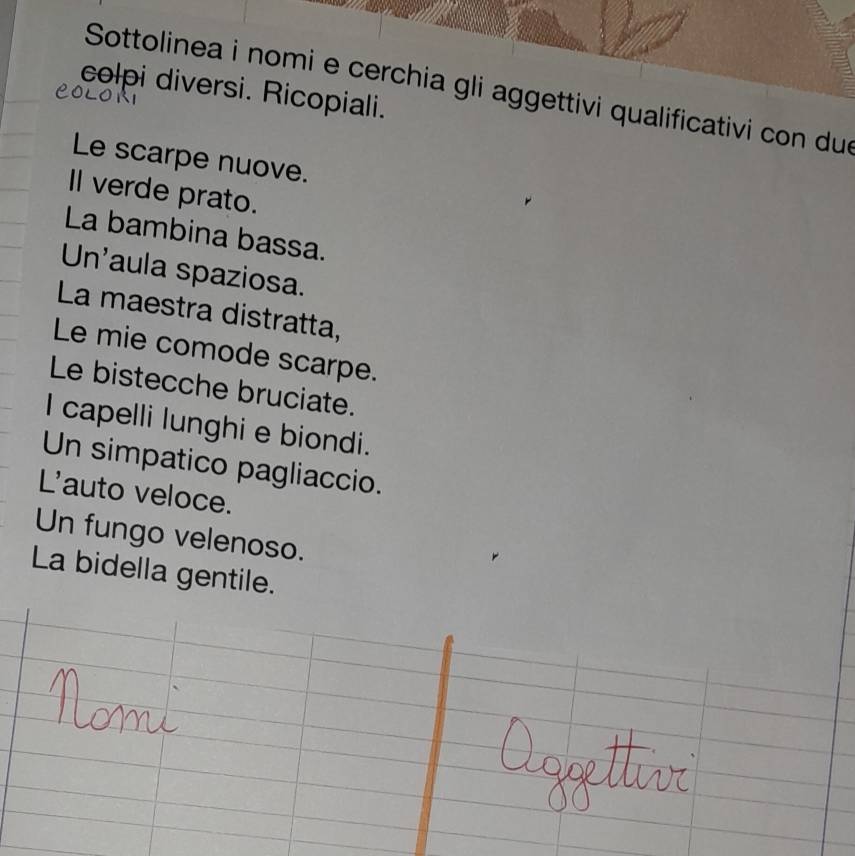 Sottolinea i nomi e cerchia gli aggettivi qualificativi con due
colpi diversi. Ricopiali.
COLORI
Le scarpe nuove.
Il verde prato.
La bambina bassa.
Un'aula spaziosa.
La maestra distratta,
Le mie comode scarpe.
Le bistecche bruciate.
I capelli lunghi e biondi.
Un simpatico pagliaccio.
L'auto veloce.
Un fungo velenoso.
La bidella gentile.
Nomi
Aggettivi